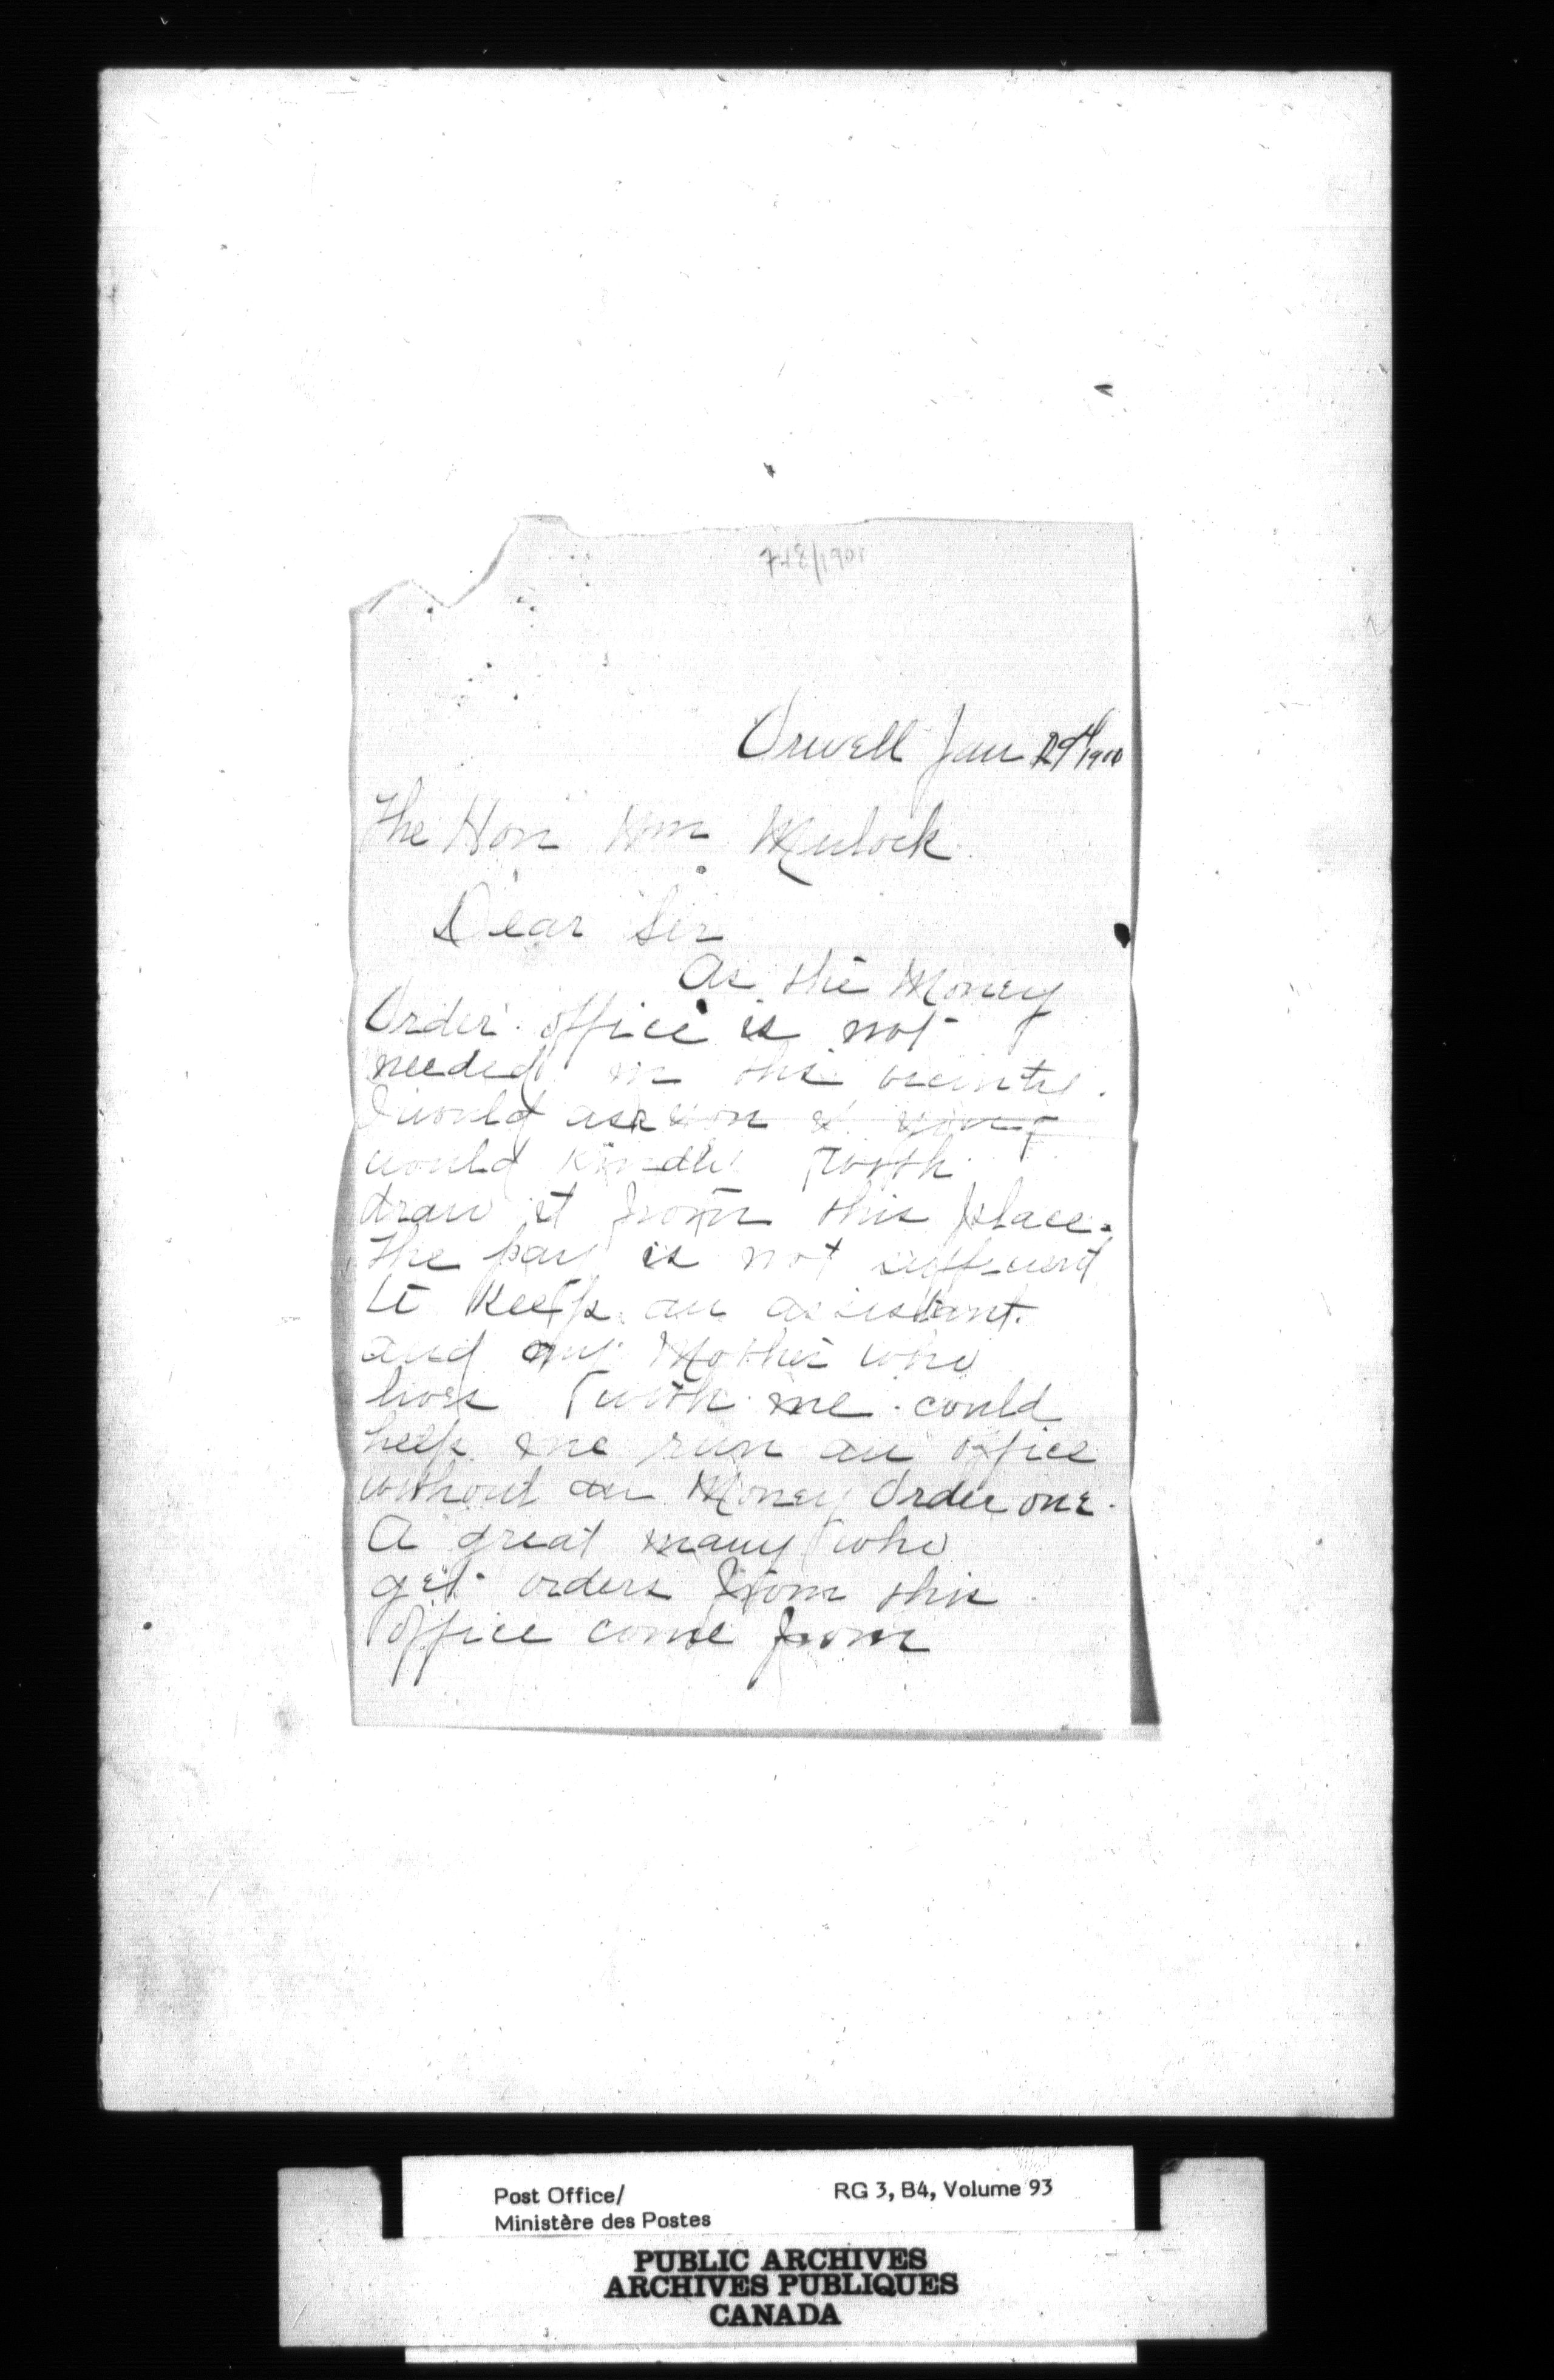 Orwell Jan 29th 1900
The Hon Wm Mulock
Dear Sir
As the Money
Order office is not
needed in this vicinty.
I would ask you if you
would kindly with
draw it from this place.
The pay is not sufficient
to keep an assistant.
and my Mother who
lives with me could
help me run an office
without an Money Order one.
A great many who
get orders from this
office come from
Post Office/
Ministère des Postes
RG 3, B4, Volume 93
PUBLIC ARCHIVES
ARCHIVES PUBLIQUES
CANADA